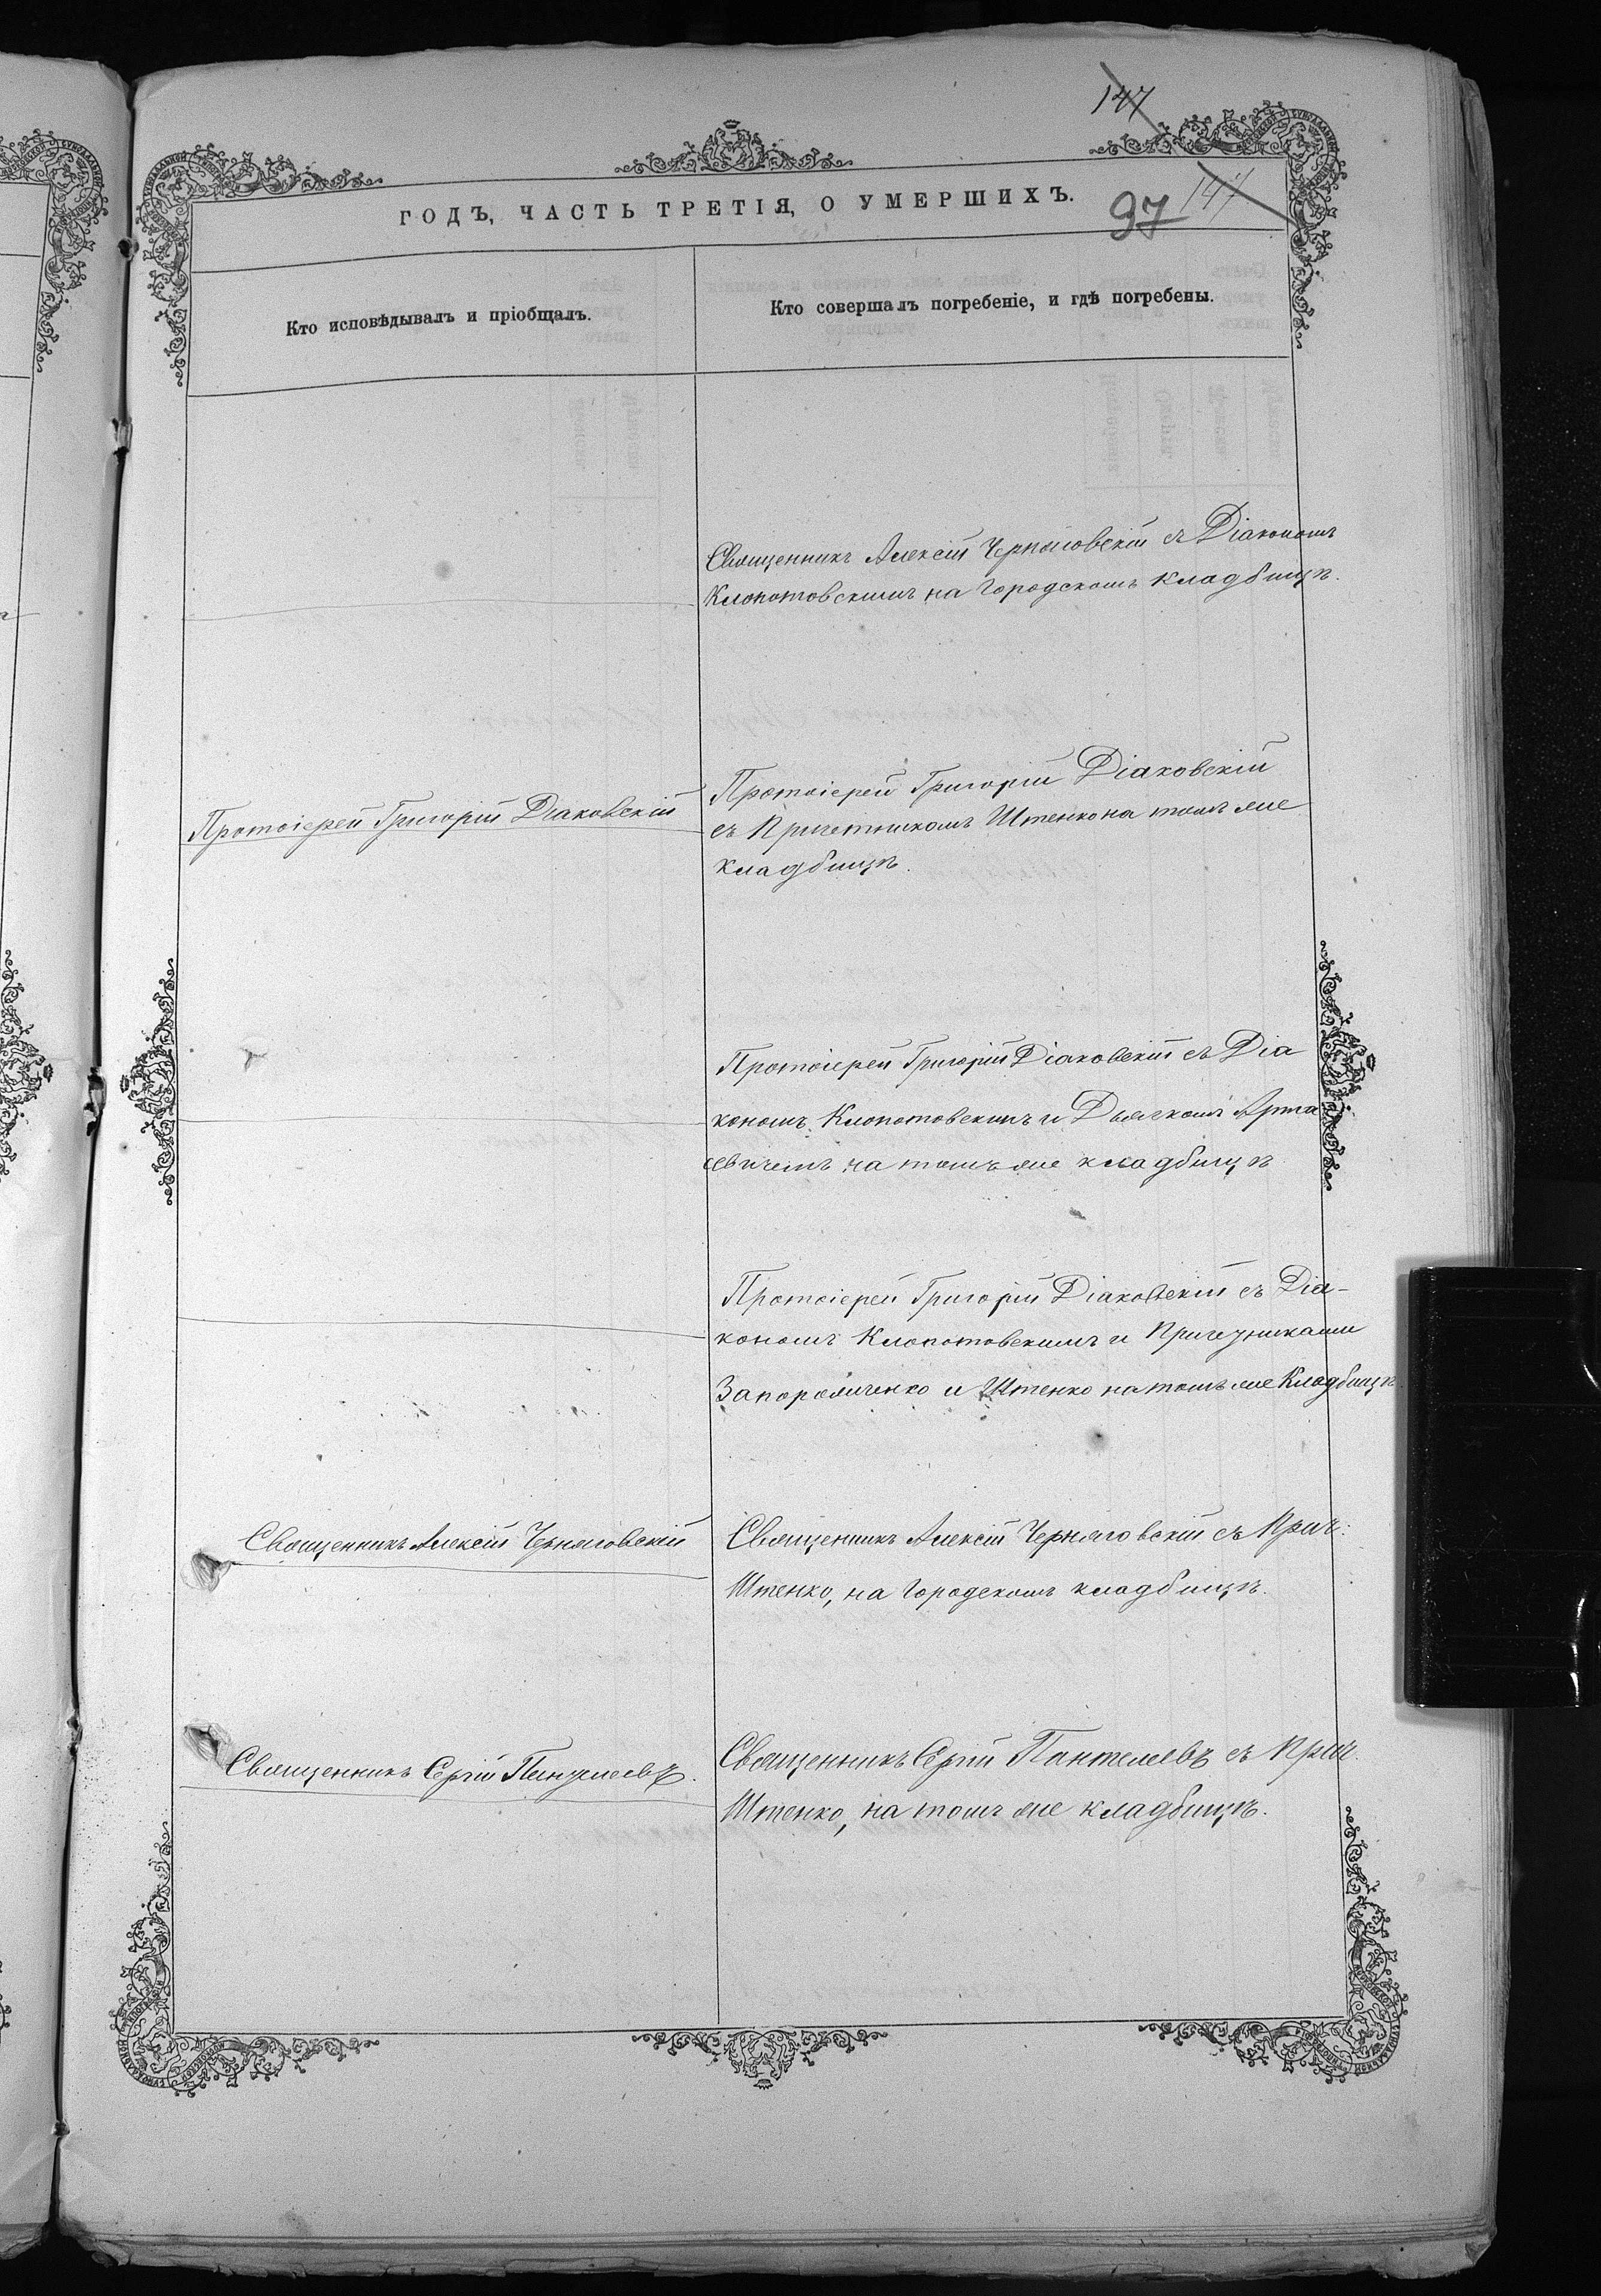 147
ГОДЪ, ЧАСТЬ ТРЕТІЯ, О УМЕРШИХЪ.
97 147
Кто исповѣдывалъ и пріобщалъ.
Кто совершалъ погребеніе, и гдѣ погребены.
Священникъ Алексій Черняговскій съ Діакономъ
Клопотовскимъ на Городскомъ кладбищѣ.
Протоіерей Григорій Діаковскій
Протоіерей Григорій Діаковскій
съ Причетникомъ Штенко на томъ же
кладбищѣ.
Протоіерей Григорій Діаковскій съ Діа
кономъ Клопотовскимъ и Дьячкомъ
евичемъ на томъ же кладбищѣ
Протоіерей Григорій Діаковскій съ Діа-
кономъ Клопотовскимъ и Причетниками
Запорожченко и Штенко на томъ же Кладбищѣ
Священникъ Алексій Черняговскій
Священникъ Алексій Черняговскій съ Прич:
Штенко, на Городскомъ кладбищѣ.
Священникъ Сергій Пантелеевъ.
Священникъ Сергій Пантелеевъ съ Прич.
Штенко, на томъ же кладбищѣ.